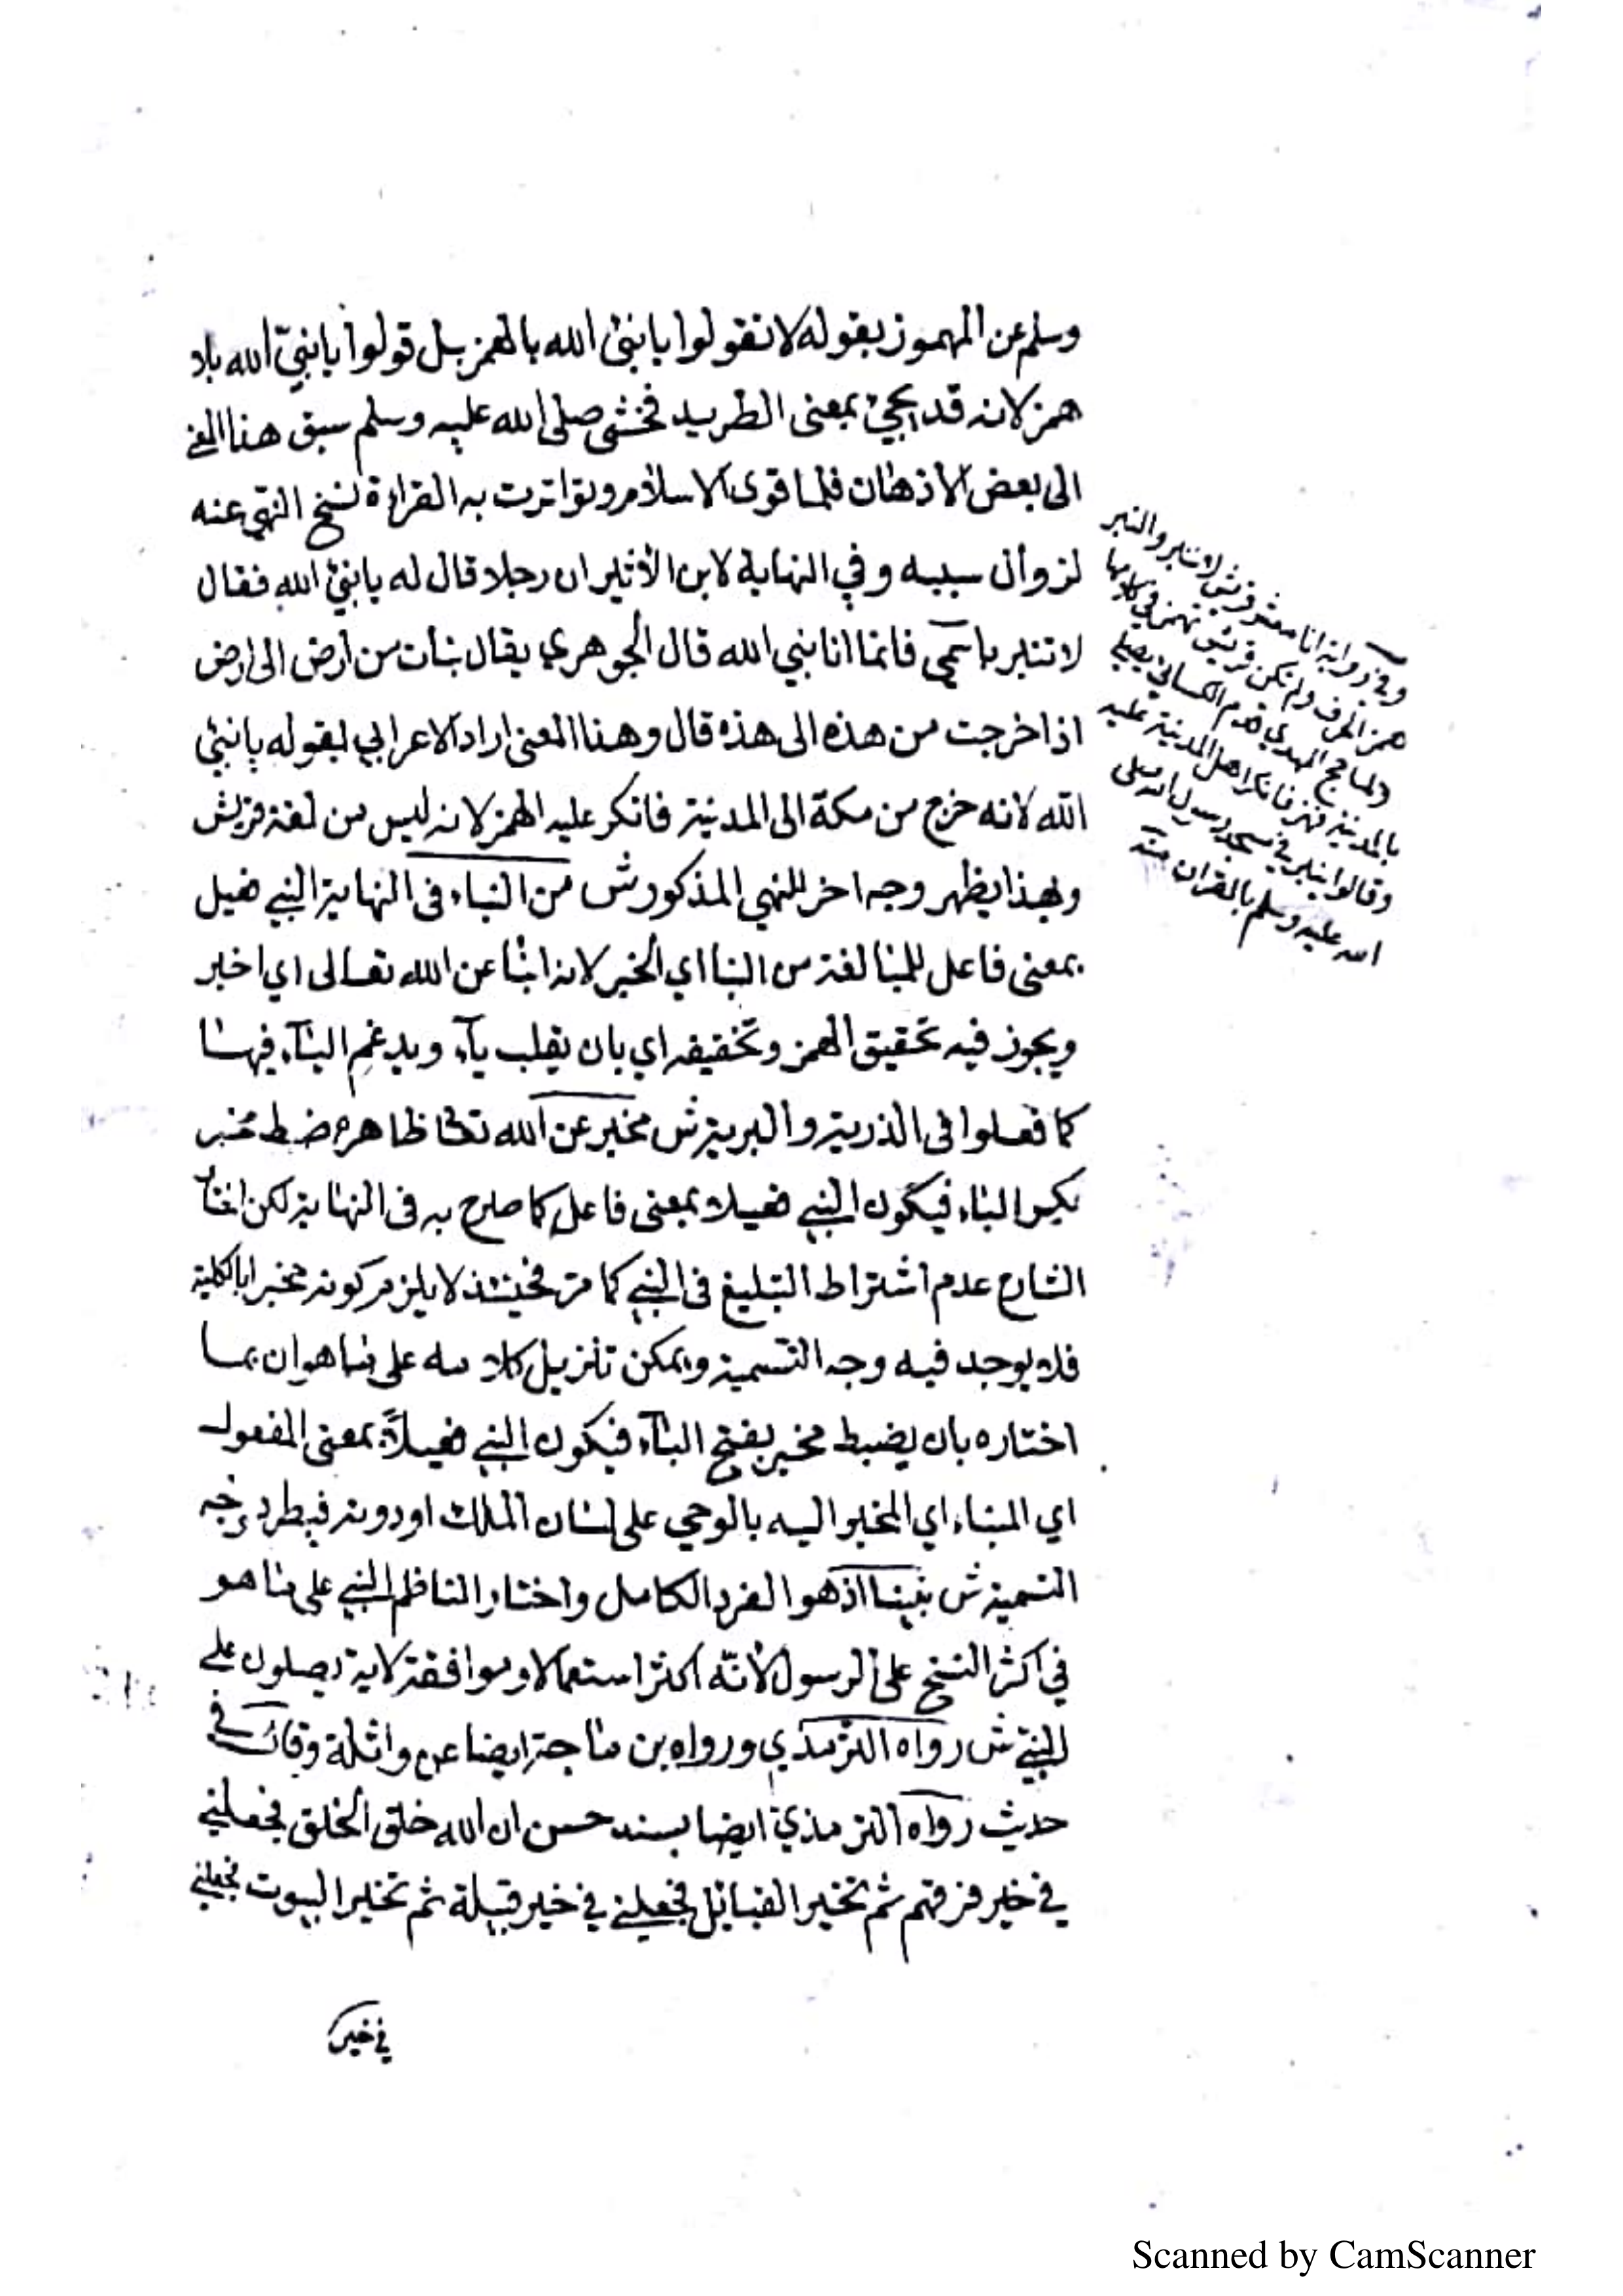 وسلم عن المهموز بقوله لا تقولوا يا نبئ الله بالهمز بل قولوا يا نبيّ الله بلا
همز لانه قد يجئ بمعنى الطريد فخشى صلى الله عليه وسلم سبق هذا المعنى
الى بعض الاذهان فلما قوى الاسلام وتواترت به القراءة نسخ النهي عنه
لزوال سببه وفي النهاية لابن الأثير ان رجلا قال له يا نبئ الله فقال
لا تنبر باسمي فانما انا نبي الله قال الجوهري يقال نبأت من ارض الى ارض
اذا خرجت من هذه الى هذه قال وهذا المعنى اراد الاعرابي بقوله يا نبئ
الله لانه خرج من مكة الى المدينة فانكر عليه الهمز لانه ليس من لغة قريش
وبهذا يظهر وجه اخر للنهي المذكور ش من النباء في النهاية النبي فعيل
بمعنى فاعل للمبالغة من النبا اي الخبر لانه انبا عن الله تعالى اي اخبر
ويجوز فيه تحقيق الهمز وتخفيفه اي بان يقلب ياء ويدغم الياء فيها
كما فعلوا في الذرية والبرية ش مخبر عن الله تعالى ظاهره ضبط مخبر
بكسر الباء فيكون النبي فعيلا بمعنى فاعل كما صرح به في النهاية لكن اختار
الشارح عدم اشتراط التبليغ في النبي كما مرّ فحينئذ لا يلزم كونه مخبرا بالكلية
فلا يوجد فيه وجه التسمية ويمكن تنزيل كلامه على ما هو ان بما
اختاره بان يضبط مخبر بفتح الباء فيكون النبي فعيلاً بمعنى المفعول
اي المنباء اي المخبر اليه بالوحي على لسان الملك او دونه فيطرد وجه
التسمية ش نبينا اذ هو الفرد الكامل واختار الناظم النبي على ما هو
في اكثر النسخ على الرسول لأنّه اكثر استعمالا وموافقة لاية يصلون على
النبي ش رواه الترمذي ورواه بن ماجة ايضا عن واثلة وقال في
حديث رواه الترمذي ايضا بسند حسن ان الله خلق الخلق فجعلني
في خير فرقهم ثم تخير القبائل فجعلني في خير قبيلة ثم تخير البيوت فجعلني
في خير
وفي رواية انا معشر قريش لا ننبر والنبر
همز الحرف ولم تكن قريش تهمز في كلامها
ولما حج المهدي قدم الكسائي يصلي
بالمدينة فهمز فانكر اهل المدينة عليه
وقالوا ينبر في مسجد رسول الله صلى
الله عليه وسلم بالقران منه
Scanned by CamScanner